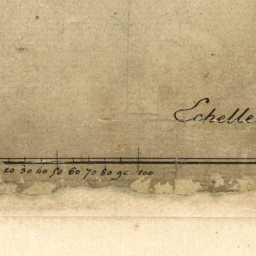 Echelle
20 30 40 50 60 70 80 90 100